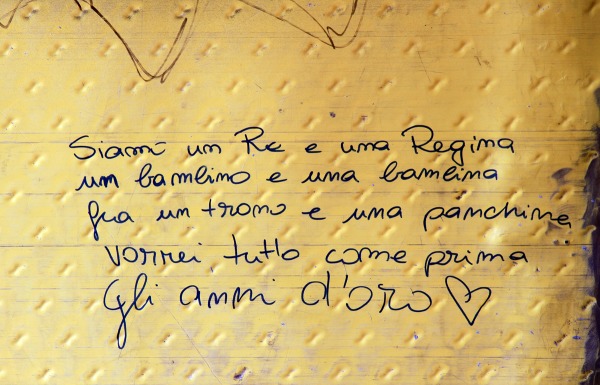 Siamo un Re e una Regina
un bambino e una bambina
fra un trono e una panchina
vorrei tutto come prima
Gli anni d'oro ♡